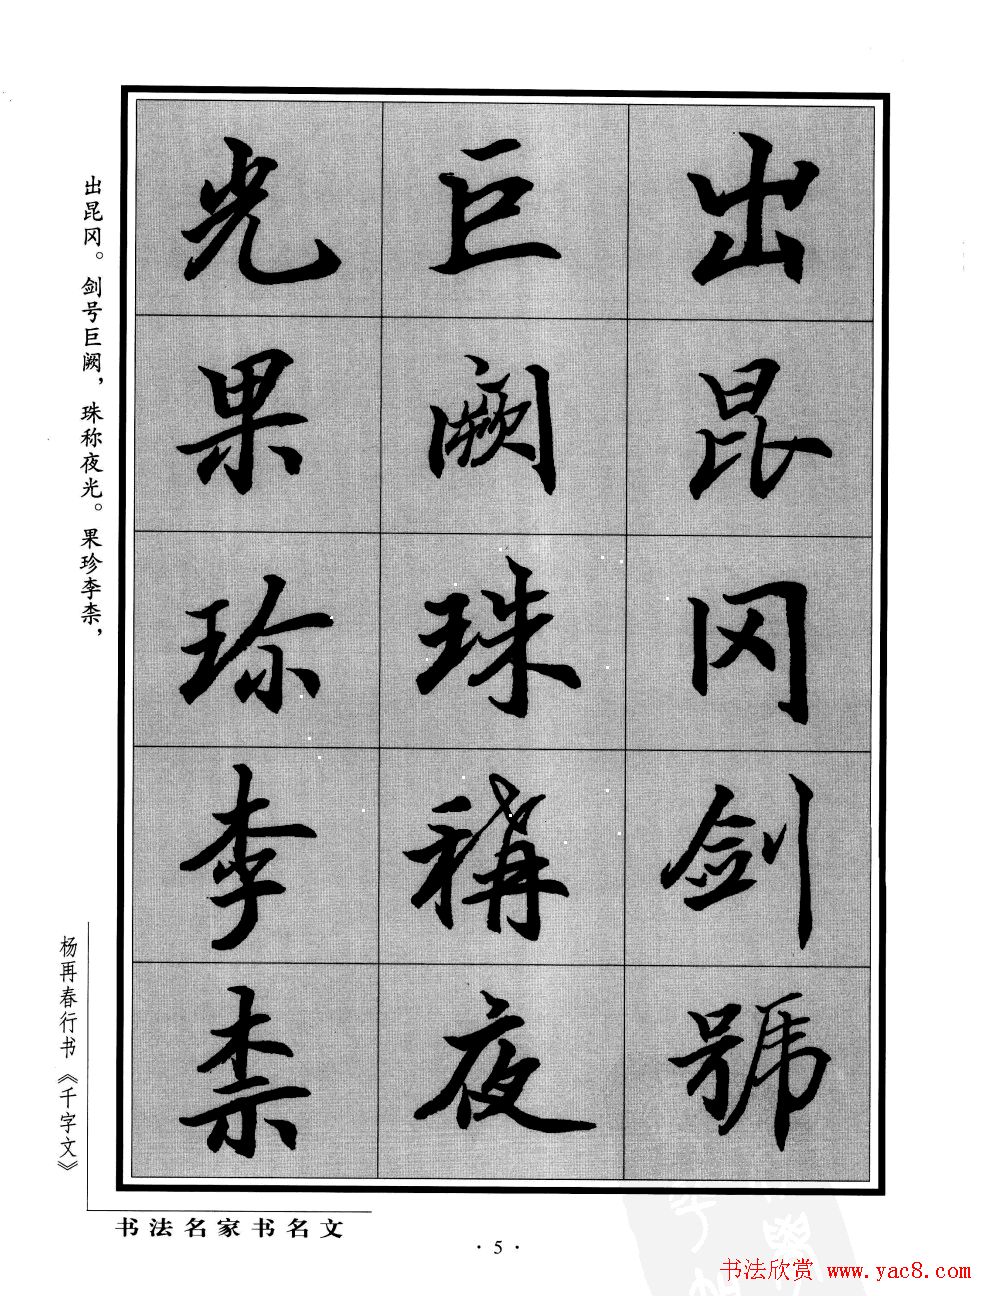 出昆冈剑號
巨阙珠稱夜
光果珎李柰
出昆冈。剑号巨阙，珠称夜光。果珍李柰，
杨再春行书《千字文》
书法名家书名文
· 5 ·
书法欣赏 www.yac8.com